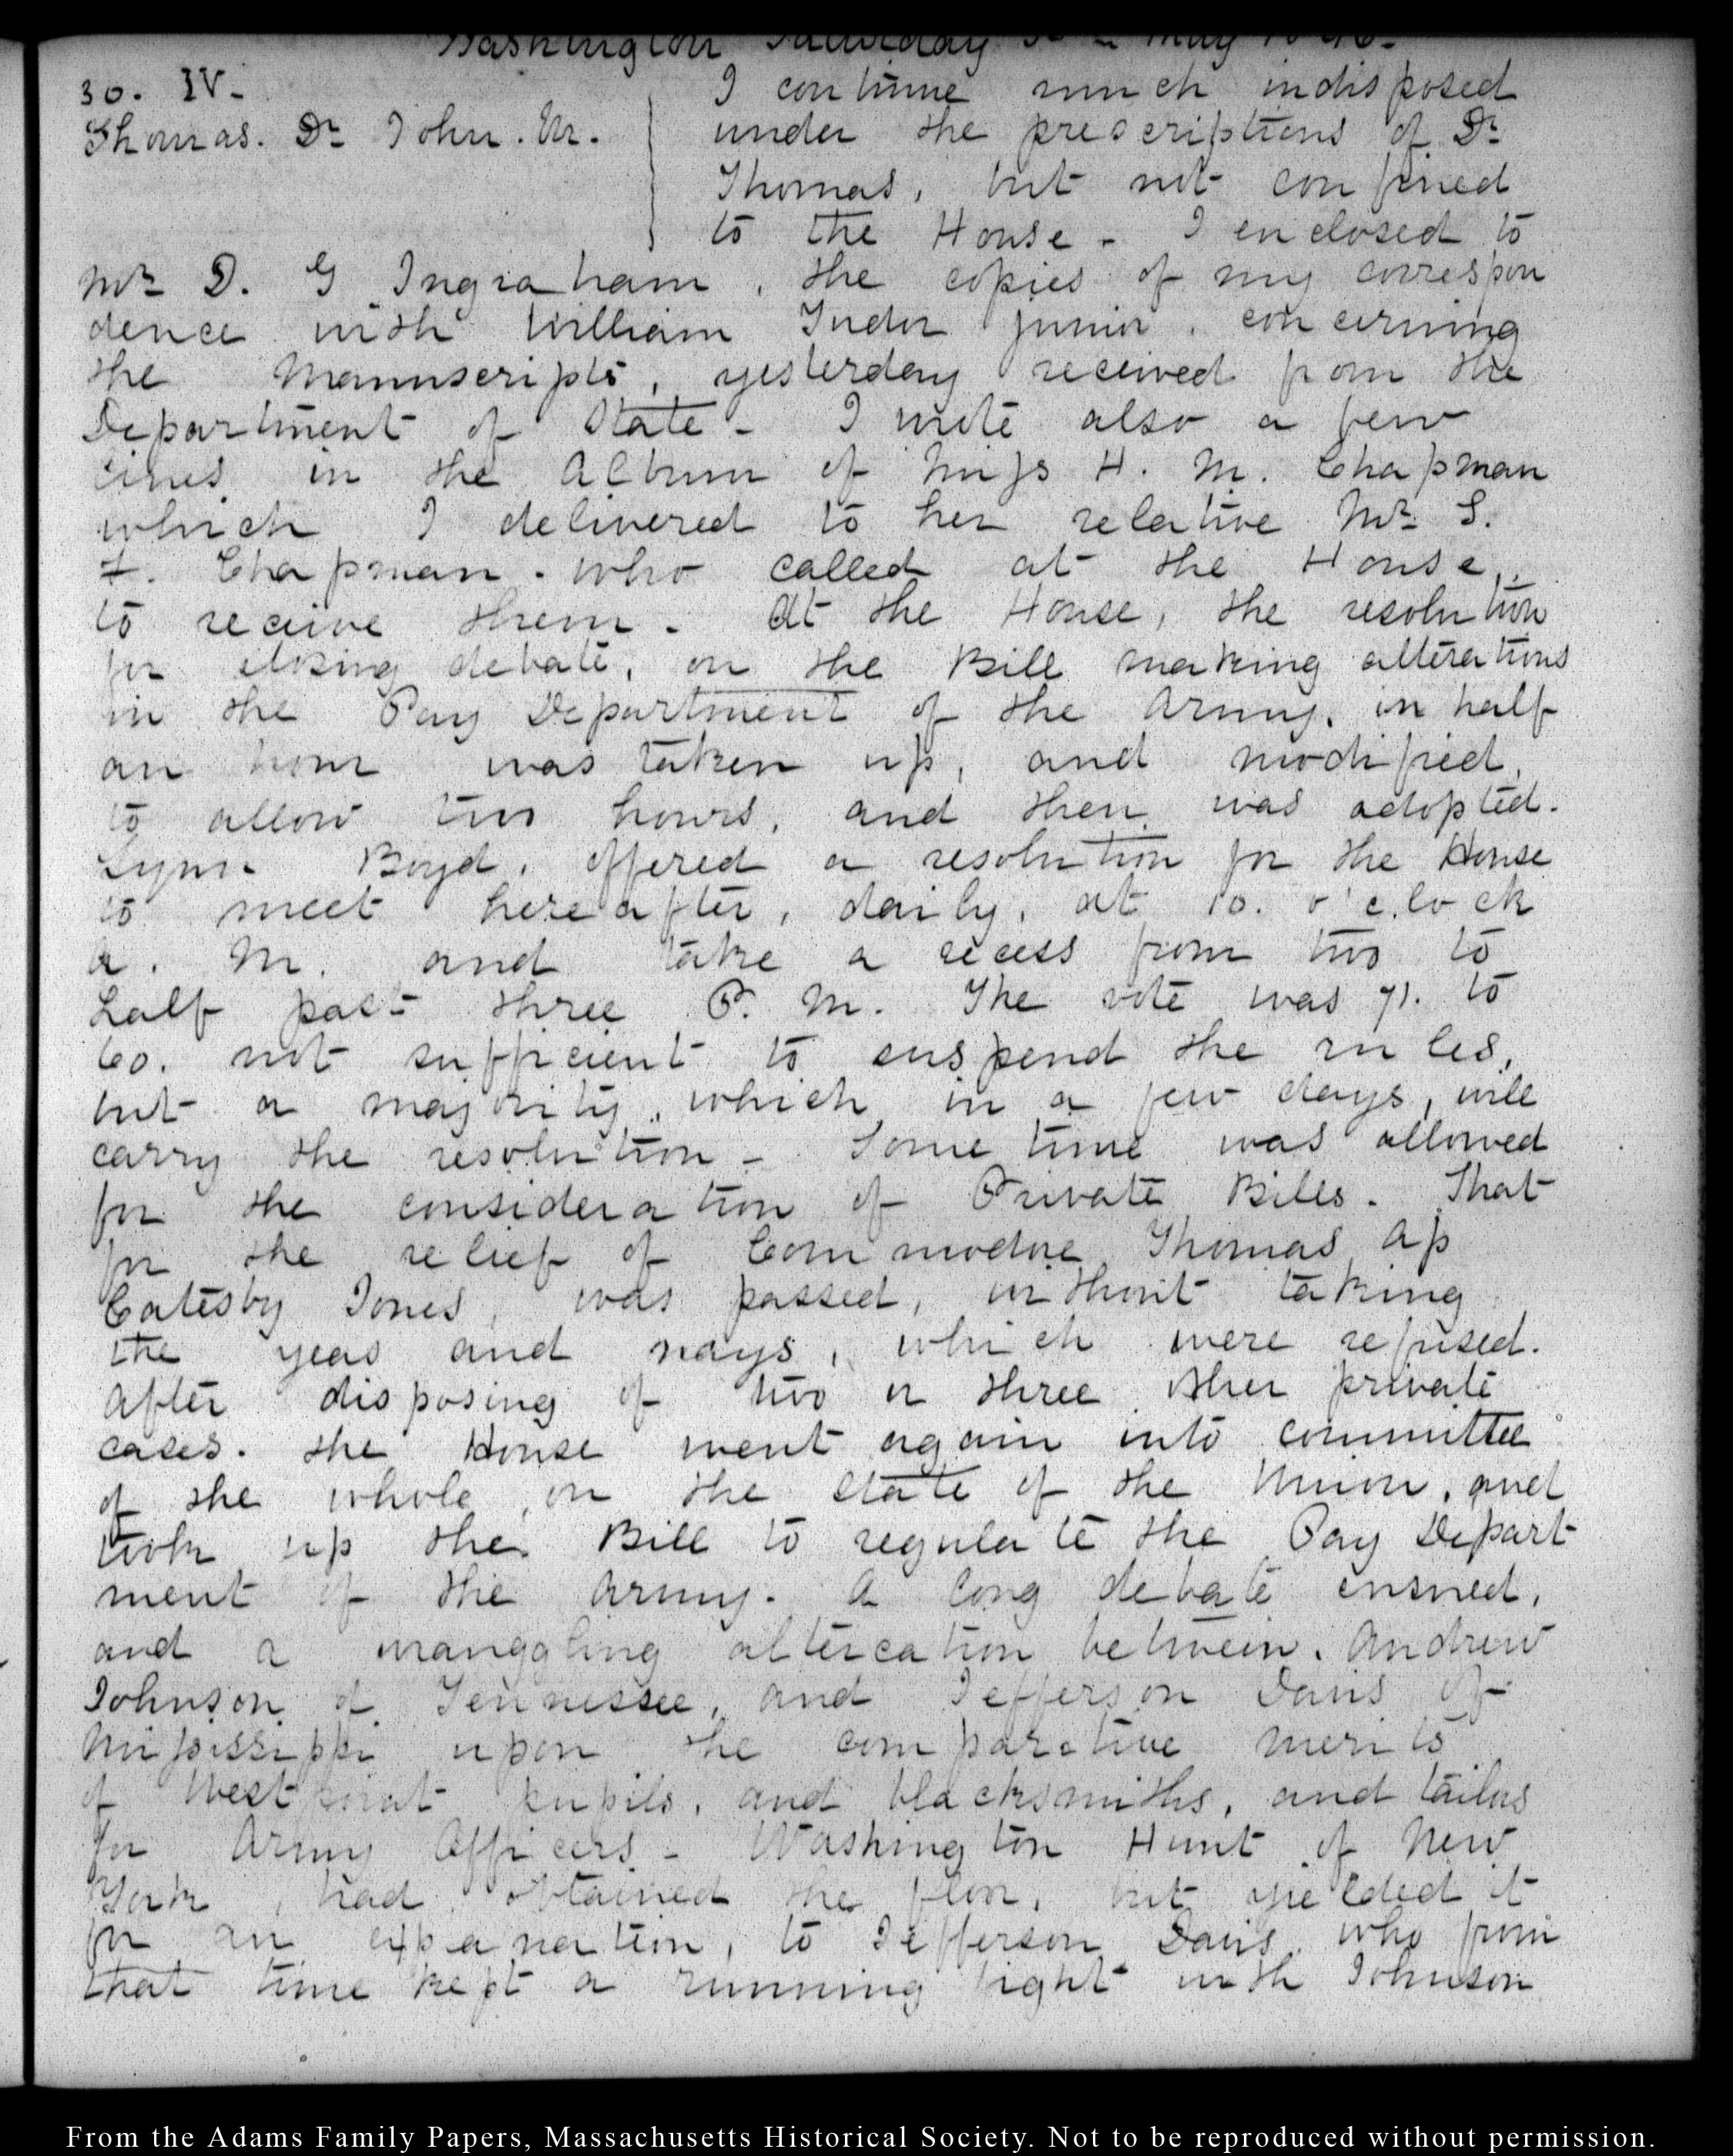 Washington Saturday 30th May 1846.
30. IV.
Thomas. Dr John. M.
I continue much indisposed
under the prescriptions of Dr
Thomas, but not confined
to the House - I enclosed to
Mr D. G Ingraham, the copies of my correspon
dence with William Tudor junior, concerning
the Manuscripts, yesterday received from the
Department of State - I wrote also a few
lines in the Album of Miss H. M. Chapman
which I delivered to her relative Mr S.
T. Chapman. who called at the House,
to receive them - At the House, the resolution
for closing debate, on the Bill making alterations
in the Pay Department of the Army, in half
an hour was taken up, and modified,
to allow two hours, and then was adopted.
Lynn Boyd, offered a resolution for the House
to meet hereafter, daily, at 10. o'clock
A. M. and take a recess from two to
half past three P. M. The vote was 71. to
60. not sufficient to suspend the rules,
but a majority, which in a few days, will
carry the resolution - Some time was allowed
for the consideration of Private Bills. That
for the relief of Commodore Thomas Ap
Catesby Jones, was passed, without taking
the yeas and nays, which were refused.
After disposing of two or three other private
cases. the House went again into committee
of the whole, on the state of the Union, and
took up the Bill to regulate the Pay Depart
ment of the Army. A long debate ensued,
and a wranggling altercation between. Andrew
Johnson of Tennessee, and Jefferson Davis of
Mississippi upon the comparative merits
of Westpoint pupils, and blacksmiths, and tailors
for Army Officers - Washington Hunt of New
York, had obtained the floor, but yielded it
for an expanation, to Jefferson Davis, who from
that time kept a running fight with Johnson
From the Adams Family Papers, Massachusetts Historical Society. Not to be reproduced without permission.